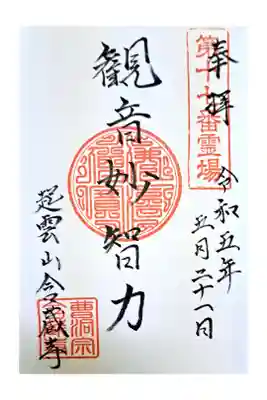 奉拝
第十七番霊場
令和五年
五月二十一日
観音妙智力
超雲山
曹洞宗